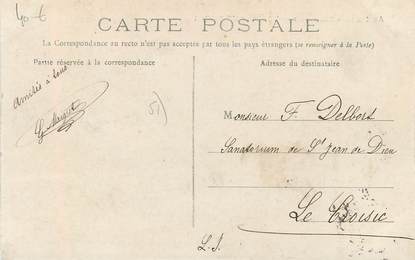 40 €
CARTE POSTALE
La Correspondance au recto n'est pas acceptée par tous les pays étrangers (se renseigner à la Poste)
Partie réservée à la correspondance
Adresse du destinataire
Amitiés à tous
51)
Monsieur F. Delbert
Sanatorium de St Jean de Dieu
Le Croisic
L. I.